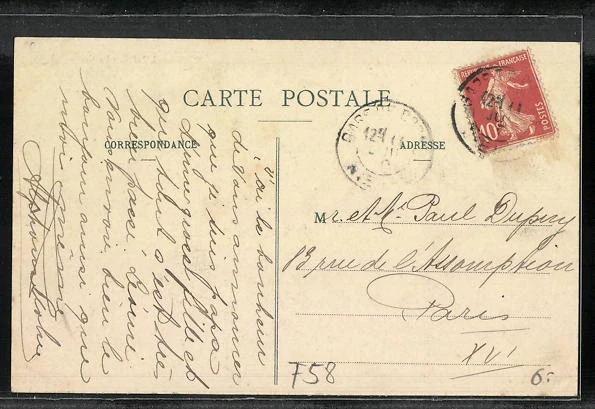 CARTE POSTALE
CORRESPONDANCE
ADRESSE
J'ai le bonheur
de vous annoncer
que je suis papa
d'une grosse fille et
que tout s'est très
bien passé. Léonie
vous envoie bien le
bonjour ainsi que
moi
M r. et Me Paul Dupuy
13 rue de l'Assomption
Paris
XVI
REPUBLIQUE FRANÇAISE
POSTES
10
GARE
12
758
6-